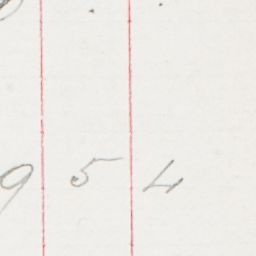 9 5 4